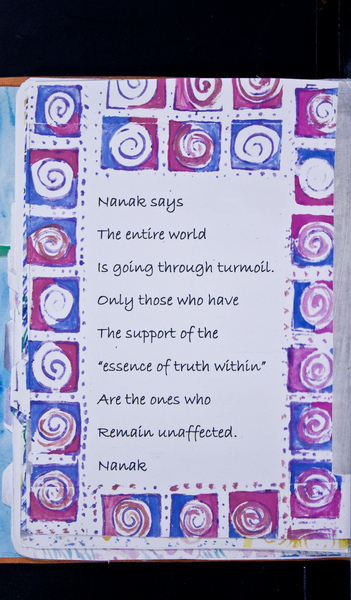 Nanak says
The entire world
Is going through turmoil.
Only those who have
The support of the
“essence of truth within”
Are the ones who
Remain unaffected.
Nanak